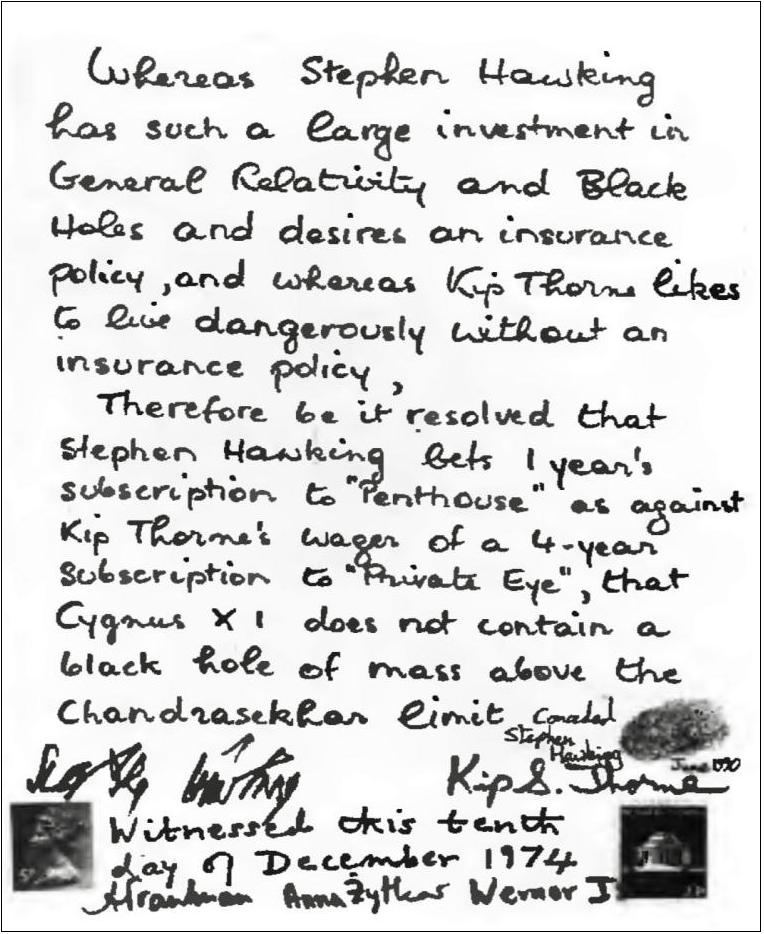 Whereas Stephen Hawking
has such a large investment in
General Relativity and Black
Holes and desires an insurance
policy, and whereas Kip Thorne likes
to live dangerously without an
insurance policy,
Therefore be it resolved that
Stephen Hawking bets 1 year's
subscription to "Penthouse" as against
Kip Thorne's wager of a 4-year
subscription to "Private Eye", that
Cygnus X 1 does not contain a
black hole of mass above the
Chandrasekhar limit
Conceded
Stephen
Hawking
June 1990
Kip S. Thorne
Witnessed this tenth
day of December 1974
Anna Żytkow Werner I